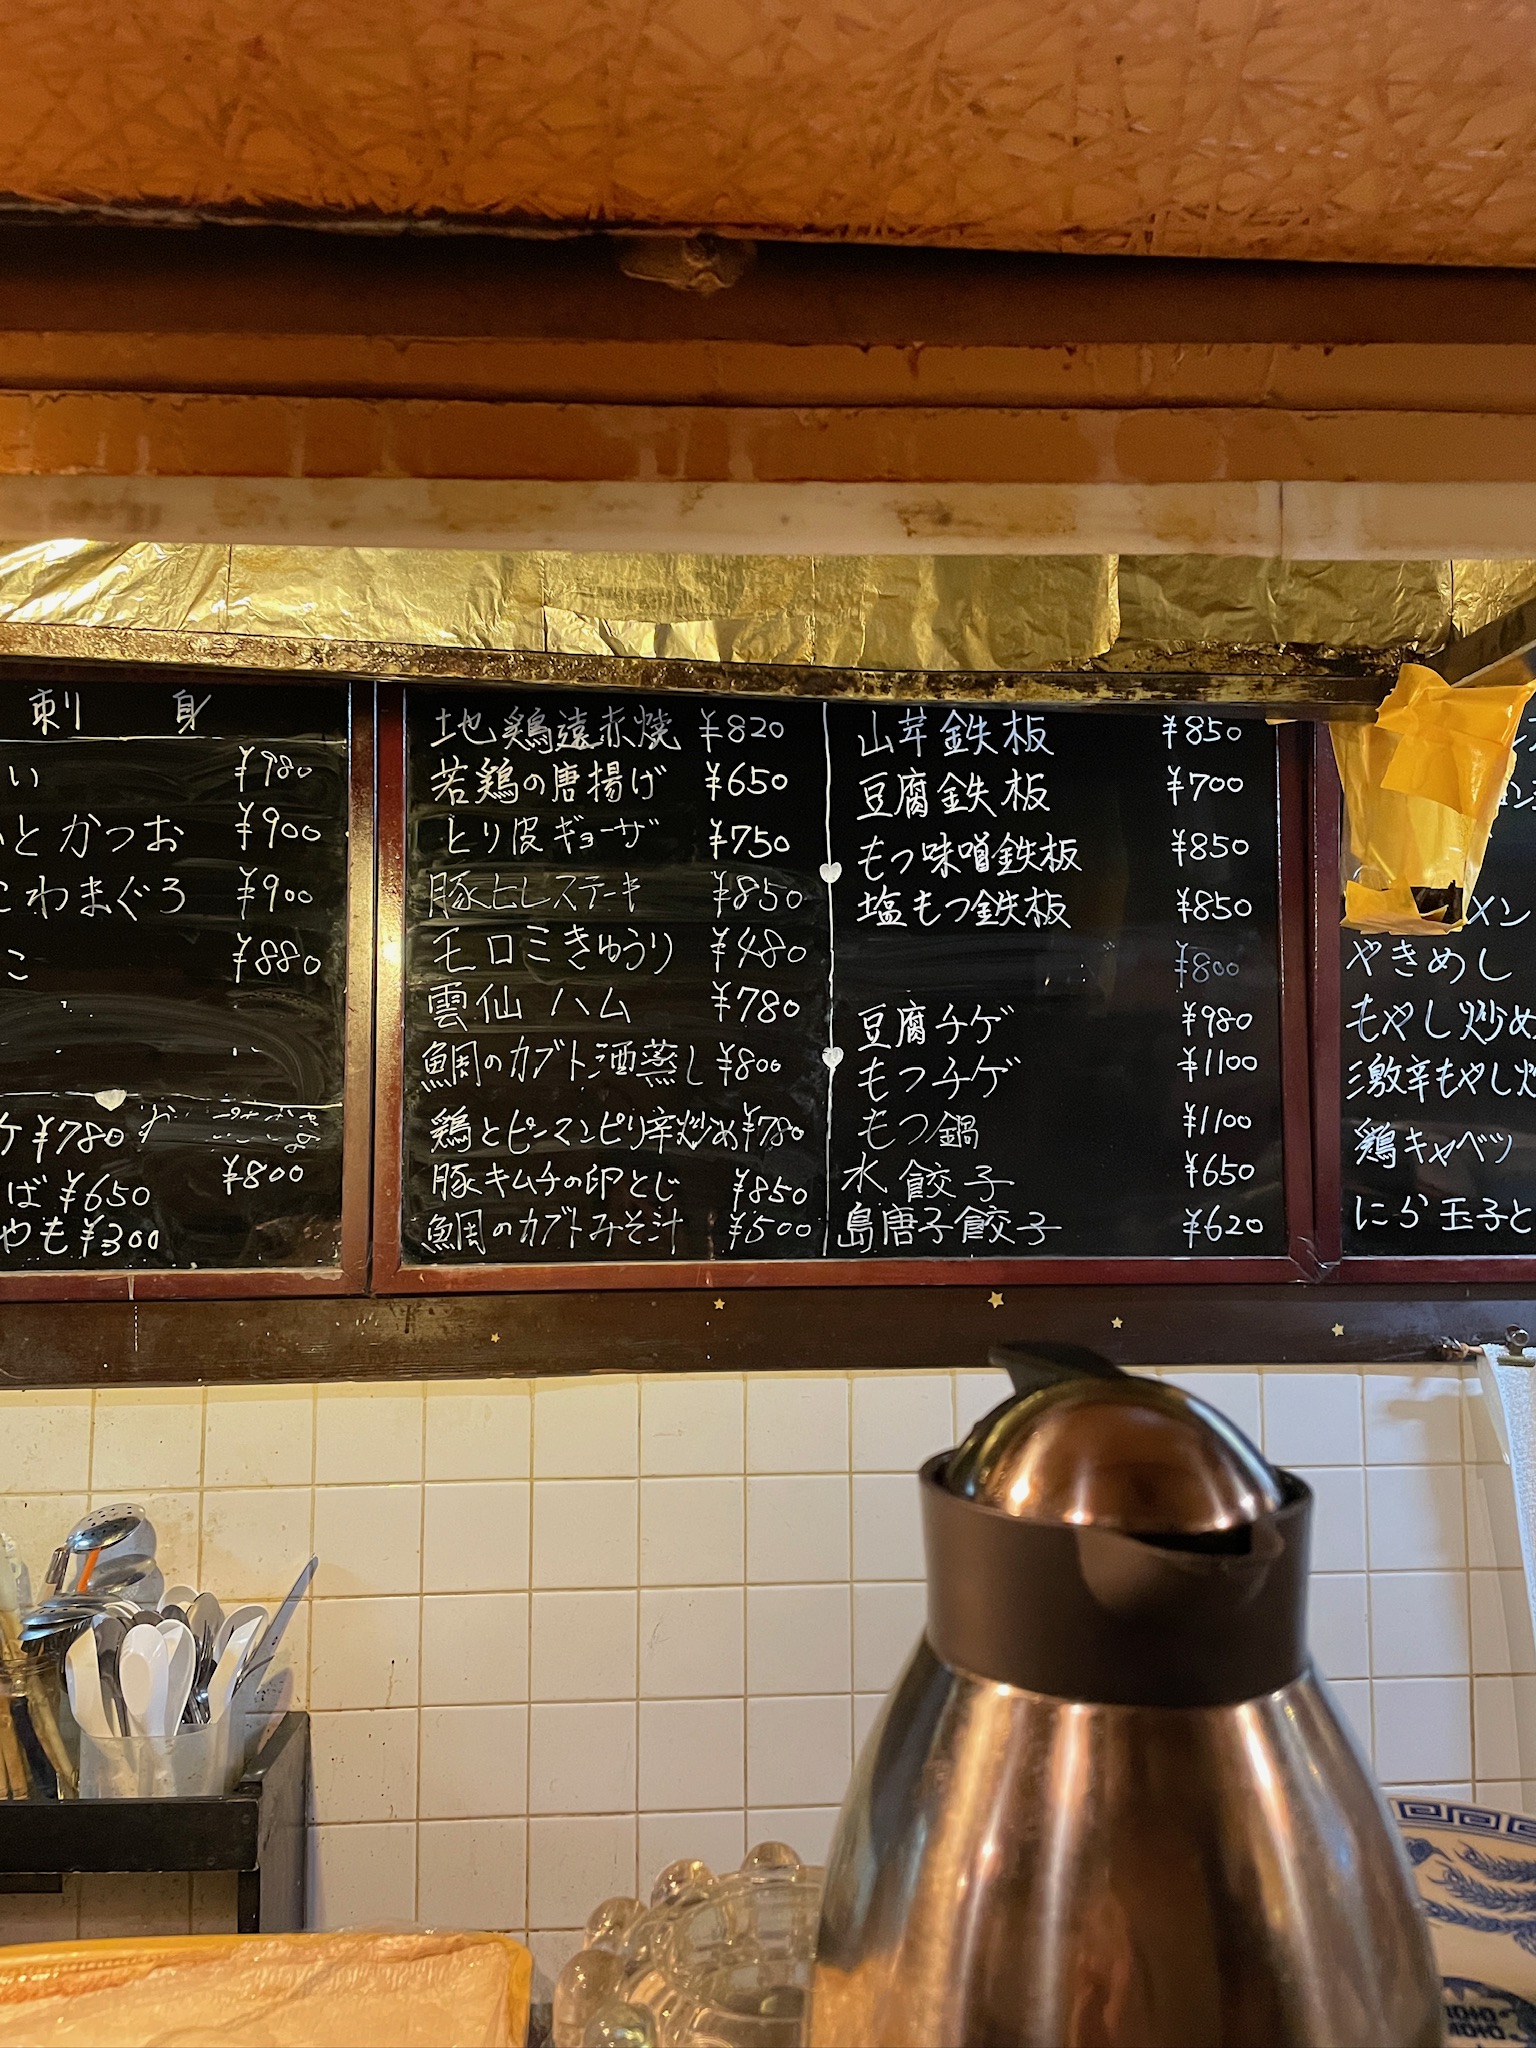 刺 身
い ¥980
とかつお ¥900
こわまぐろ ¥900
こ ¥880
ケ ¥780
¥800
ば ¥650
やも ¥300
地鶏遠赤焼 ¥820
若鶏の唐揚げ ¥650
とり皮ギョーザ ¥750
豚ヒレステーキ ¥850
モロミきゅうり ¥480
雲仙ハム ¥780
鯛のカブト酒蒸し ¥800
鶏とピーマンピリ辛炒め ¥780
豚キムチの卵とじ ¥850
鯛のカブトみそ汁 ¥500
山芋鉄板 ¥850
豆腐鉄板 ¥700
もつ味噌鉄板 ¥850
塩もつ鉄板 ¥850
¥800
豆腐チゲ ¥980
もつチゲ ¥1100
もつ鍋 ¥1100
水餃子 ¥650
島唐子餃子 ¥620
メン
やきめし
もやし炒め
激辛もやし炒
鶏キャベツ
にら玉子と